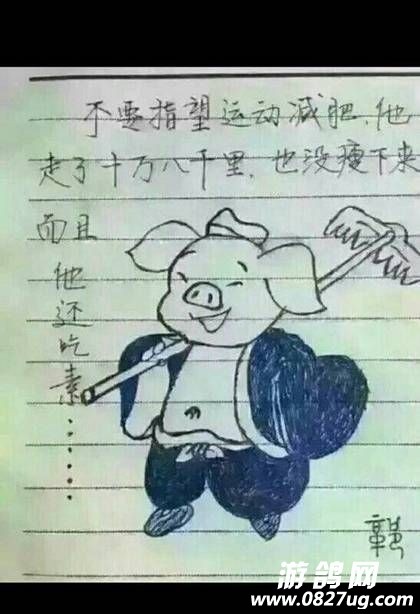 不要指望运动减肥，他
走了十万八千里，也没瘦下来
而且
他还吃素……
游鸽网
www.0827ug.com